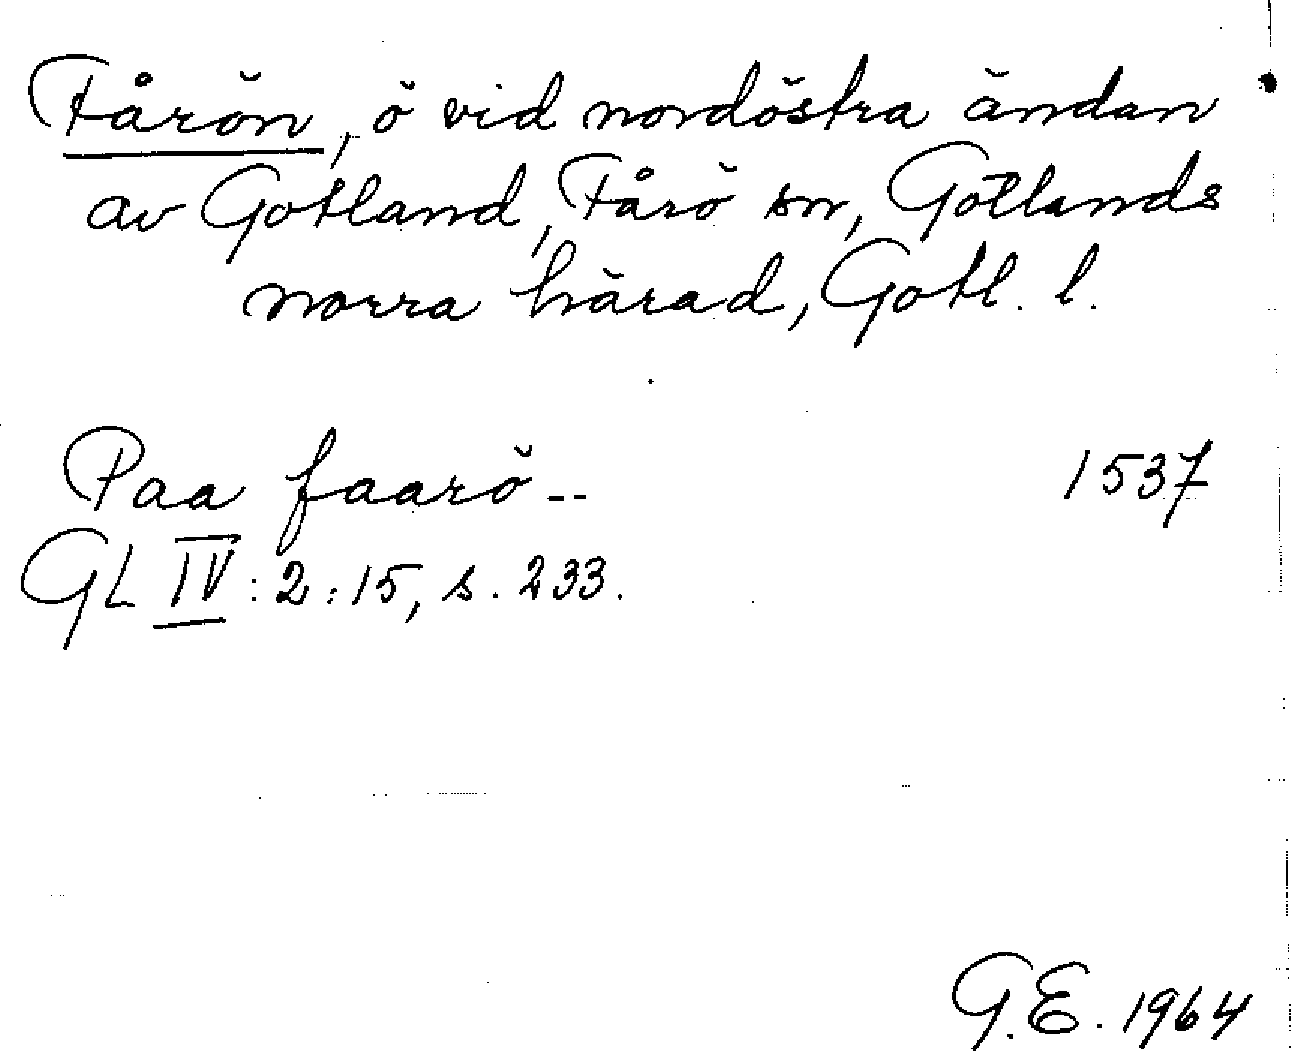 Fårön, ö vid nordöstra ändan
av Gotland, Fårö sn, Gotlands
norra härad, Gotl. l.
Paa faarö -- 1537
GL IV: 2: 15, s. 233.
G.E. 1964